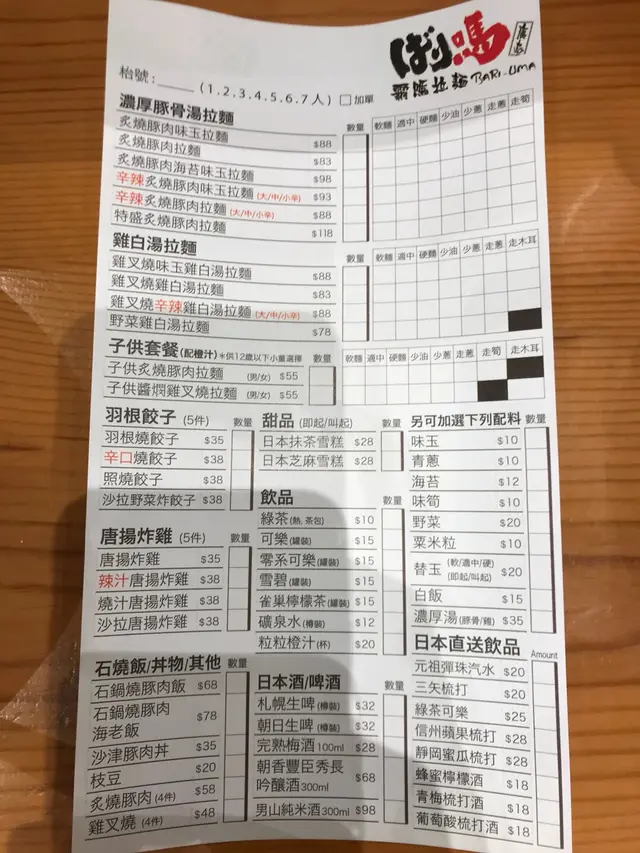 ばり嗎
廣島
霸嗎拉麵 BARI-UMA
枱號:____ (1.2.3.4.5.6.7人) □加單
濃厚豚骨湯拉麵 數量 軟麵 適中 硬麵 少油 少蔥 走蔥 走筍
炙燒豚肉味玉拉麵 $88
炙燒豚肉拉麵 $83
炙燒豚肉海苔味玉拉麵 $98
辛辣炙燒豚肉味玉拉麵 (大/中/小辛) $93
辛辣炙燒豚肉拉麵 (大/中/小辛) $88
特盛炙燒豚肉拉麵 $118
雞白湯拉麵 數量 軟麵 適中 硬麵 少油 少蔥 走蔥 走木耳
雞叉燒味玉雞白湯拉麵 $88
雞叉燒雞白湯拉麵 $83
雞叉燒辛辣雞白湯拉麵 (大/中/小辛) $88
野菜雞白湯拉麵 $78
子供套餐 (配橙汁) *供12歲以下小童選擇 數量 軟麵 適中 硬麵 少油 少蔥 走蔥 走筍 走木耳
子供炙燒豚肉拉麵 (男/女) $55
子供醬燜雞叉燒拉麵 (男/女) $55
羽根餃子 (5件) 數量
羽根燒餃子 $35
辛口燒餃子 $38
照燒餃子 $38
沙拉野菜炸餃子 $38
唐揚炸雞 (5件) 數量
唐揚炸雞 $35
辣汁唐揚炸雞 $38
燒汁唐揚炸雞 $38
沙拉唐揚炸雞 $38
石燒飯/丼物/其他 數量
石鍋燒豚肉飯 $68
石鍋燒豚肉
海老飯 $78
沙津豚肉丼 $35
枝豆 $20
炙燒豚肉 (4件) $58
雞叉燒 (4件) $48
甜品 (即起/叫起) 數量
日本抹茶雪糕 $28
日本芝麻雪糕 $28
飲品 數量
綠茶 (熱, 茶包) $10
可樂 (罐裝) $15
零系可樂 (罐裝) $15
雪碧 (罐裝) $15
雀巢檸檬茶 (罐裝) $15
礦泉水 (樽裝) $12
粒粒橙汁 (杯) $20
日本酒/啤酒 數量
札幌生啤 (樽裝) $32
朝日生啤 (樽裝) $32
完熟梅酒 100ml $28
朝香豐臣秀長
吟釀酒 300ml $68
男山純米酒 300ml $98
另可加選下列配料 數量
味玉 $10
青蔥 $10
海苔 $12
味筍 $10
野菜 $20
粟米粒 $10
替玉 (軟/適中/硬) (即起/叫起) $20
白飯 $15
濃厚湯 (豚骨/雞) $35
日本直送飲品 Amount
元祖彈珠汽水 $20
三矢梳打 $20
綠茶可樂 $25
信州蘋果梳打 $28
靜岡蜜瓜梳打 $28
蜂蜜檸檬酒 $18
青梅梳打酒 $18
葡萄酸梳打酒 $18